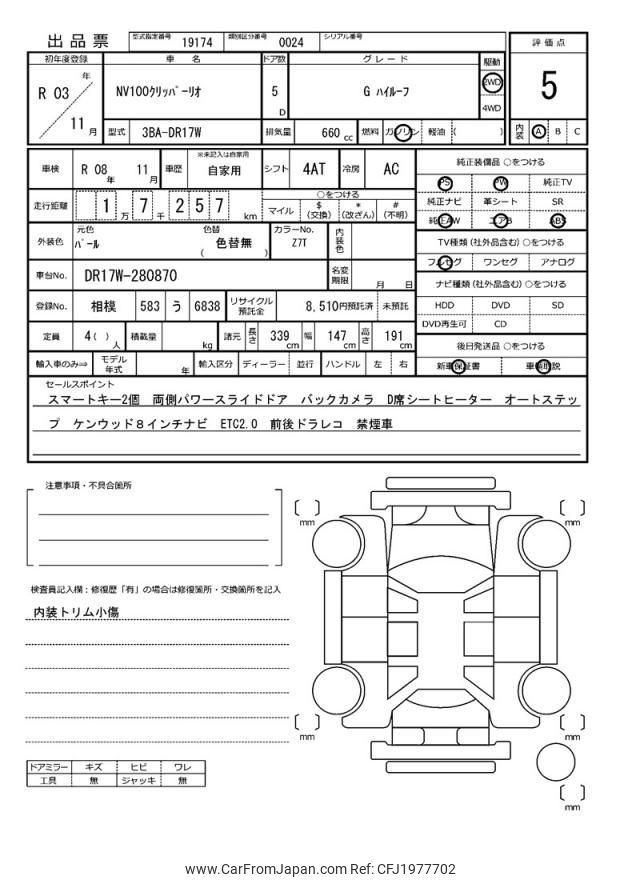 出品票 型式指定番号 19174 類別区分番号 0024 シリアル番号
初年度登録 車 名 ドア数 グレード 駆動 評価点
R 03 年 11 月 NV100クリッパーリオ 5 D G ハイルーフ 2WD 4WD 5
型式 3BA-DR17W 排気量 660 cc 燃料 ガソリン 軽油 ( ) 内装 A B C
車検 R 08 年 11 月 車歴 ※未記入は自家用 自家用 シフト 4AT 冷房 AC 純正装備品 ○をつける
PS PW 純正TV
走行距離 1 万 7 千 2 5 7 km ○をつける マイル $ (交換) * (改ざん) # (不明) 純正ナビ 革シート SR
純正AW エアB ABS
外装色 元色 パール 色替 ( 色替無 ) カラーNo. Z7T 内装色 TV種類 (社外品含む) ○をつける
フルセグ ワンセグ アナログ
車台No. DR17W-280870 名変期限 月 日 ナビ種類 (社外品含む) ○をつける
登録No. 相模 583 う 6838 リサイクル預託金 8,510円預託済 未預託 HDD DVD SD
DVD再生可 CD
定員 4 ( ) 人 積載量 kg 諸元 長さ 339 cm 幅 147 cm 高さ 191 cm 後日発送品 ○をつける
輸入車のみ⇒ モデル年式 年 輸入区分 ディーラー 並行 ハンドル 左 右 新車保証書 車輌取説
セールスポイント
スマートキー2個 両側パワースライドドア バックカメラ D席シートヒーター オートステッ
プ ケンウッド8インチナビ ETC2.0 前後ドラレコ 禁煙車
注意事項・不具合箇所
mm mm
検査員記入欄：修復歴「有」の場合は修復箇所・交換箇所を記入
内装トリム小傷
mm mm
ドアミラー キズ ヒビ ワレ
工具 無 ジャッキ 無
mm
www.CarFromJapan.com Ref: CFJ1977702